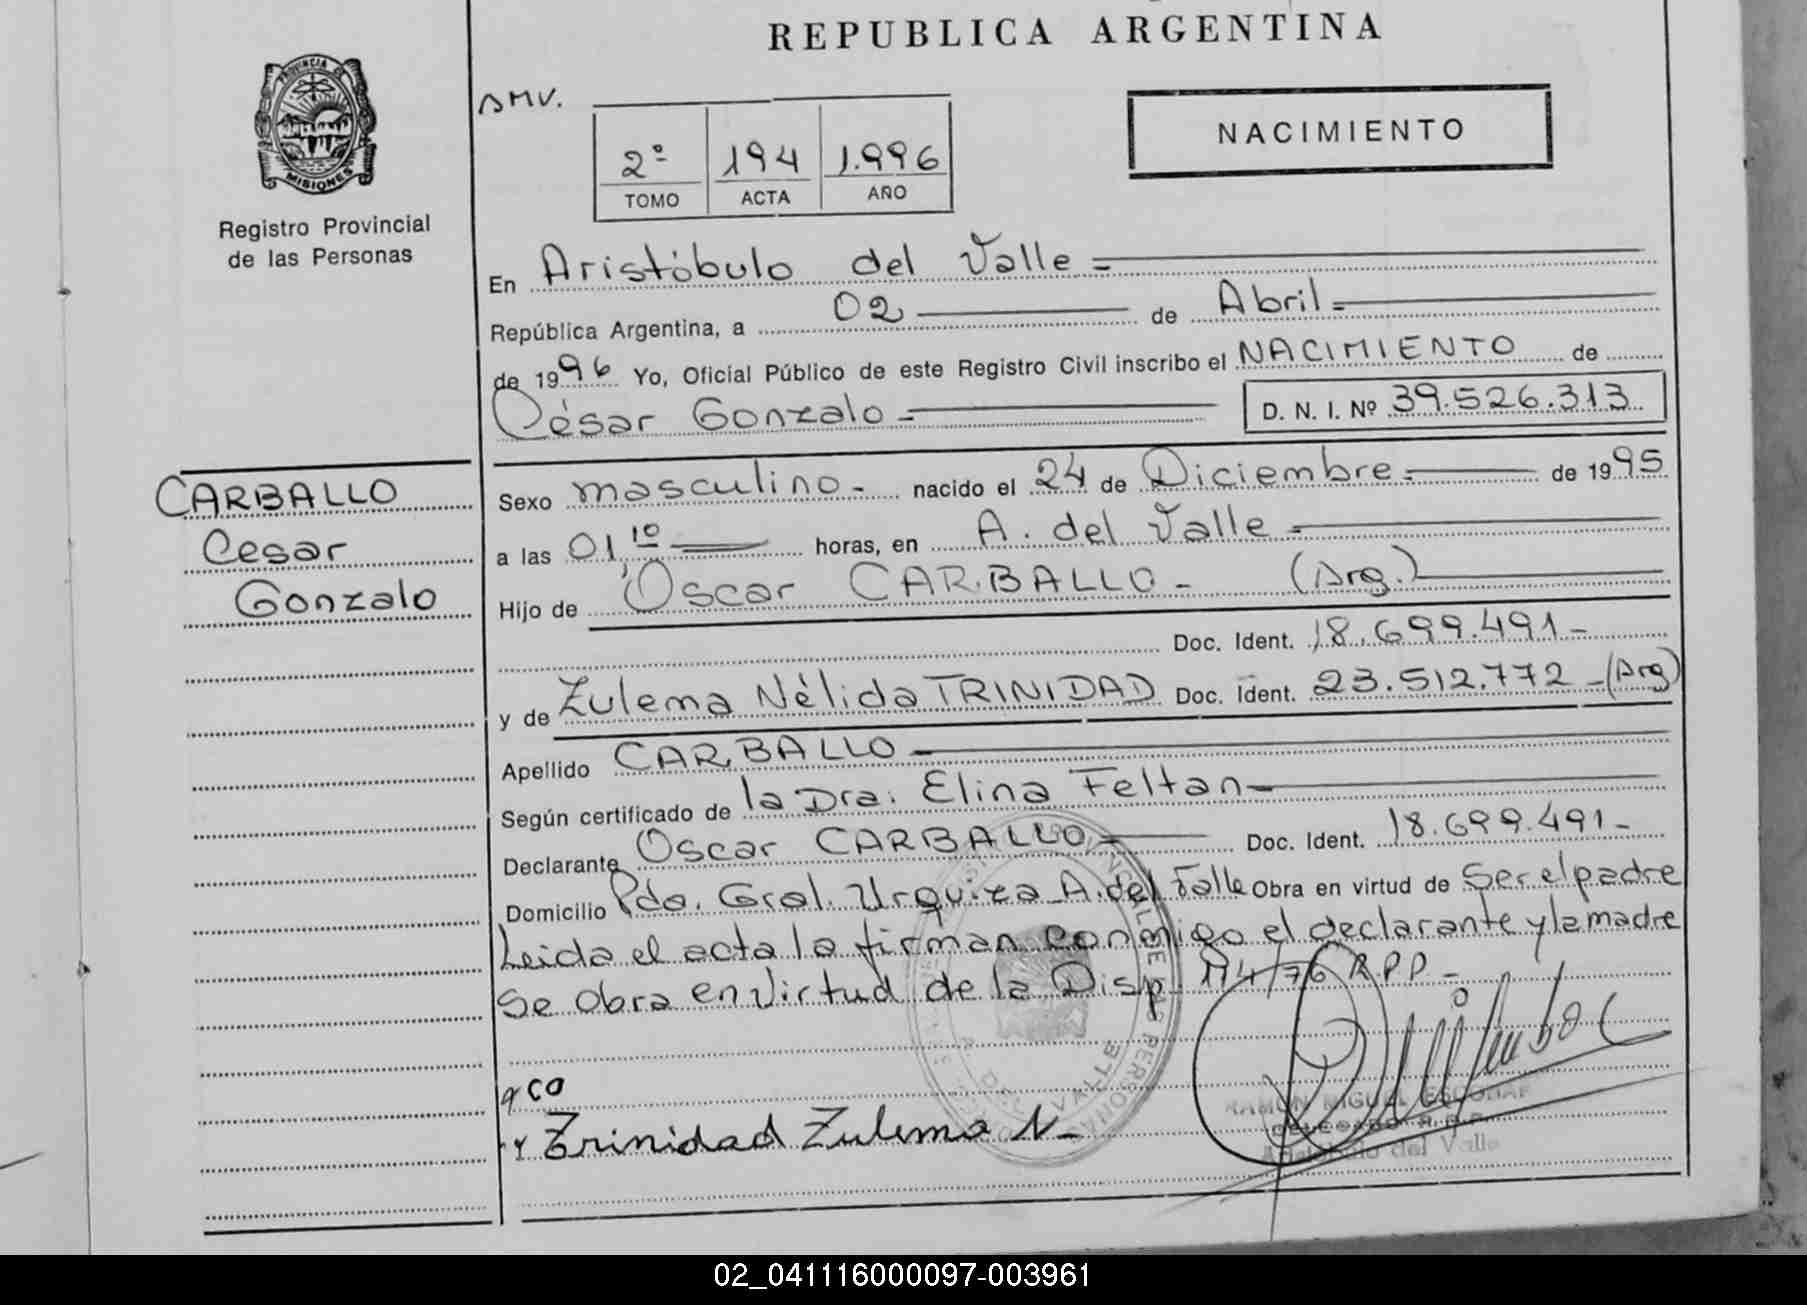 REPUBLICA ARGENTINA
PROVINCIA DE
MISIONES
Registro Provincial
de las Personas
2º 194 1.996
TOMO ACTA AÑO
NACIMIENTO
En Aristóbulo del Valle =
República Argentina, a 02 de Abril =
de 1996 Yo, Oficial Público de este Registro Civil inscribo el NACIMIENTO de
César Gonzalo = D. N. I. Nº 39.526.313
CARBALLO
Cesar
Gonzalo
Sexo masculino - nacido el 24 de Diciembre = de 1995
a las 01,10 horas, en A. del Valle =
Hijo de Oscar CARBALLO - (Arg.)
Doc. Ident. 18.699.491 -
y de Zulema Nélida TRINIDAD Doc. Ident. 23.512.772 - (Arg)
Apellido CARBALLO
Según certificado de la Dra. Elina Feltan
Declarante Oscar CARBALLO Doc. Ident. 18.699.491 -
Domicilio Pdo. Gral. Urquiza A. del Valle Obra en virtud de Ser el padre
Leida el acta la firman conmigo el declarante y la madre
Se obra en virtud de la Disp. 114/76 R.P.P -
Trinidad Zulema N-
RAMON MIGUEL ESCOBAR
DELEGADO R.P.P.
Aristóbulo del Valle
02_041116000097-003961